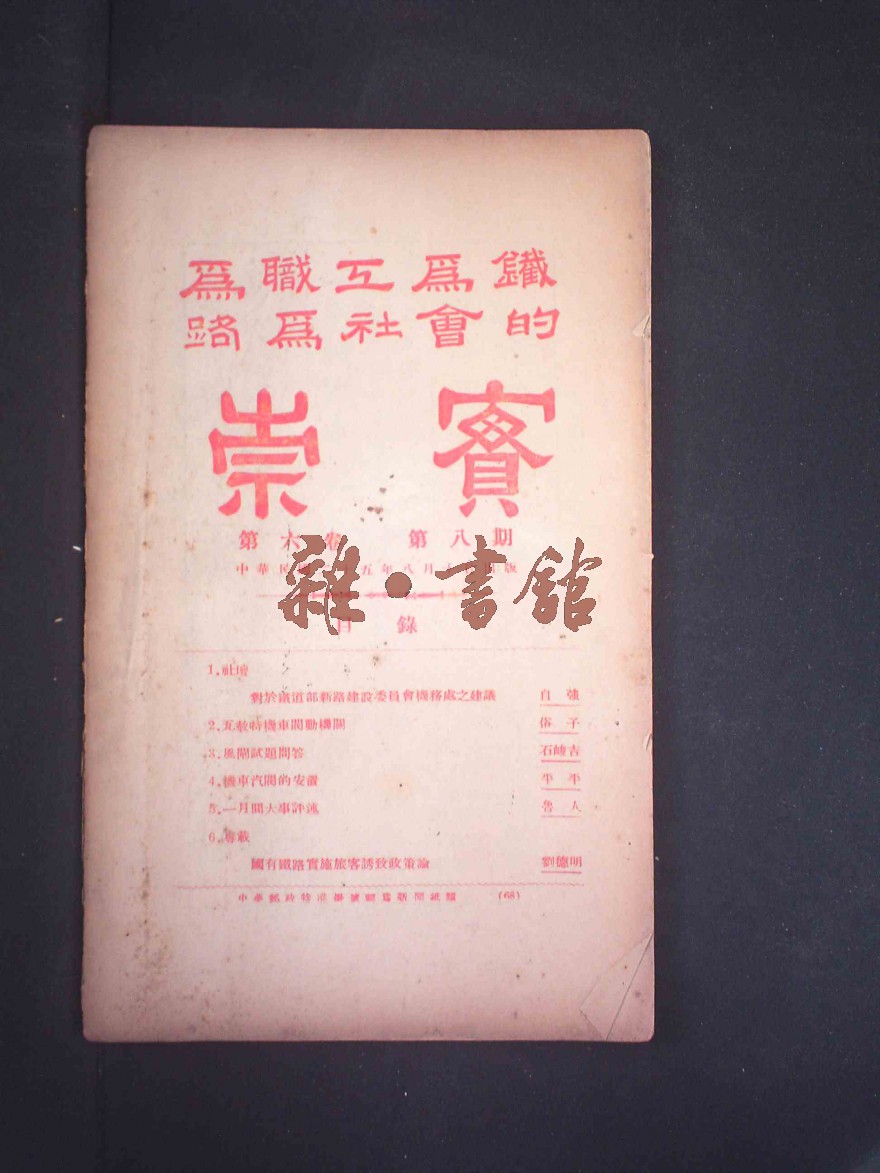 爲職工爲鐵
路爲社會的
崇實
第六卷 第八期
中華民 五年八月 出版
雜·書館
目錄
1.社壇
對於鐵道部新路建設委員會機務處之建議 自強
2.瓦敖特機車閥動機關 俗子
3.風閘試題問答 石峻吉
4.機車汽閥的安置 平平
5.一月間大事評述 魯人
6.專載
國有鐵路實施旅客誘致政策論 劉德明
中華郵政特准掛號認爲新聞紙類 (68)